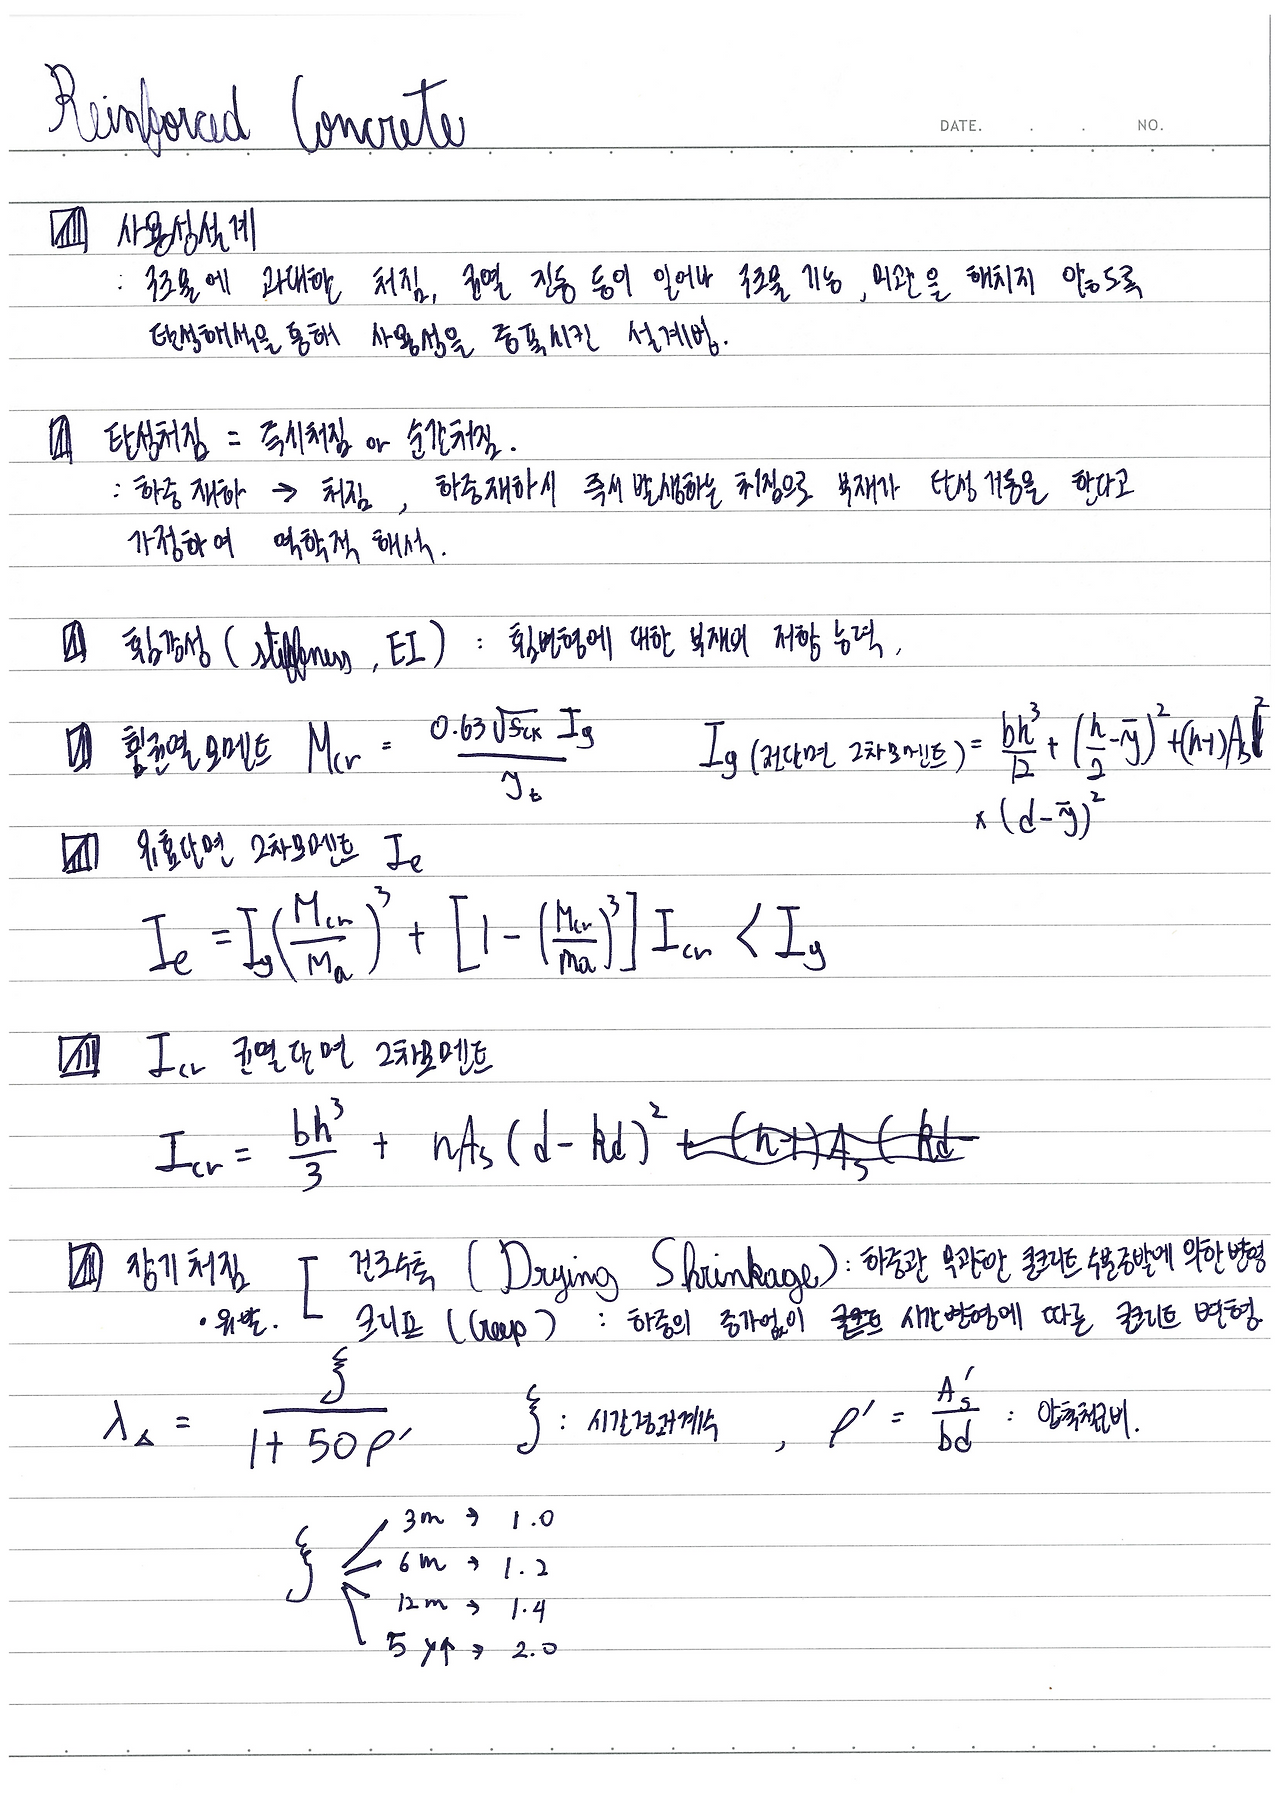 Reinforced Concrete
DATE. . . NO.
사용성설계
: 구조물에 과대한 처짐, 균열 진동 등이 일어나 구조물 기능, 미관을 해치지 않도록
탄성해석을 통해 사용성을 증폭시킨 설계법.
탄성처짐 = 즉시처짐 or 순간처짐.
: 하중 재하 → 처짐, 하중재하시 즉시 발생하는 처짐으로 부재가 탄성 거동을 한다고
가정하여 역학적 해석.
휨강성 (stiffness, EI) : 휨변형에 대한 부재의 저항 능력.
휨균열모멘트 Mcr = 0.63√fck Ig / yt   Ig (전단면 2차모멘트) = bh³/12 + (h/2 - ȳ)² + (n-1)As
× (d-ȳ)²
유효단면 2차모멘트 Ie
Ie = Ig(Mcr/Ma)³ + [1 - (Mcr/Ma)³] Icr < Ig
Icr 균열단면 2차모멘트
Icr = bh³/3 + nAs (d - kd)² + (n-1)As (kd
장기처짐 [ 건조수축 (Drying Shrinkage) : 하중관 무관한 콘크리트 수분증발에 의한 변형
• 유발. 크리프 (Creep) : 하중의 증가없이 시간변형에 따른 콘크리트 변형
λ∆ = ξ / (1 + 50ρ′)   ξ : 시간경과계수 , ρ′ = As′/bd : 압축철근비.
ξ 3m → 1.0
6m → 1.2
12m → 1.4
5 y↑ → 2.0